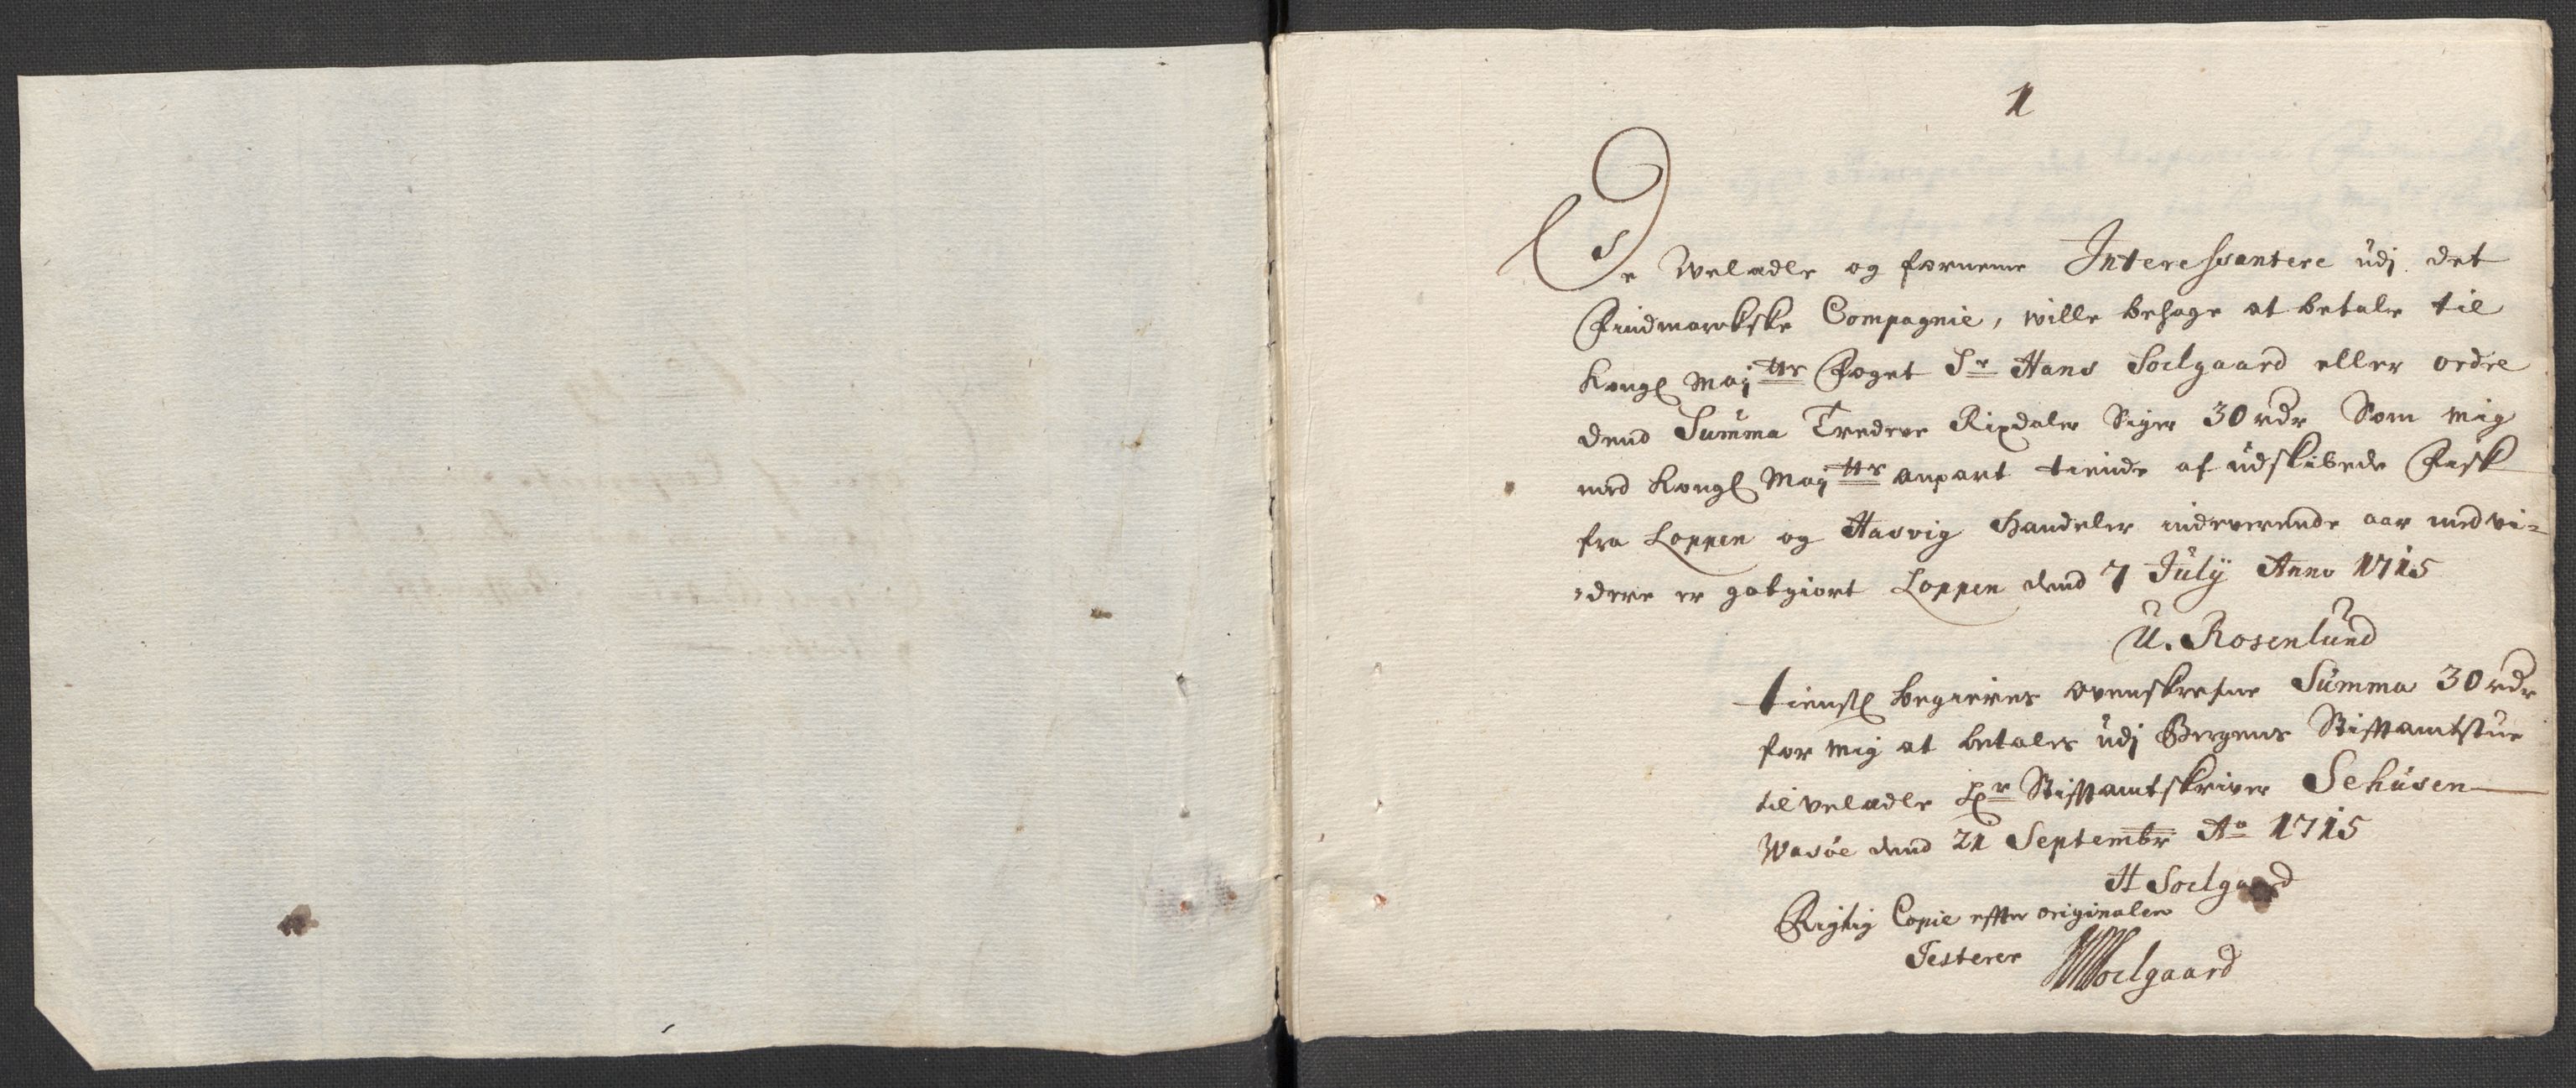 1
De Weladle og fornemme Interessentere udj det
Findmarckske Compagnie, wille behage at betale til
Kongl Maÿtts Foget Sr Hans Soelgaard eller ordre
dend Summa Tredeve Rixdaler Siger 30 rdr Som mig
med Kongl Maÿtts anpart tiende af udskibede Fisk
fra Loppen og Hasvig Handeler indeverende aar med vi-
-dere er gotgiort Loppen dend 7 Julÿ Anno 1715
U. Rosenlund
tienstl begieres ovenskrefne Summa 30 rdr
for mig at betales udj Bergens Stifftamtstue
til veladle Hr Stifftamtskriver Sehusen
Wasöe dend 21 Septembr Ao 1715
H Soelgaard
Rigtig Copie effter originalen
Testerer HSoelgaard